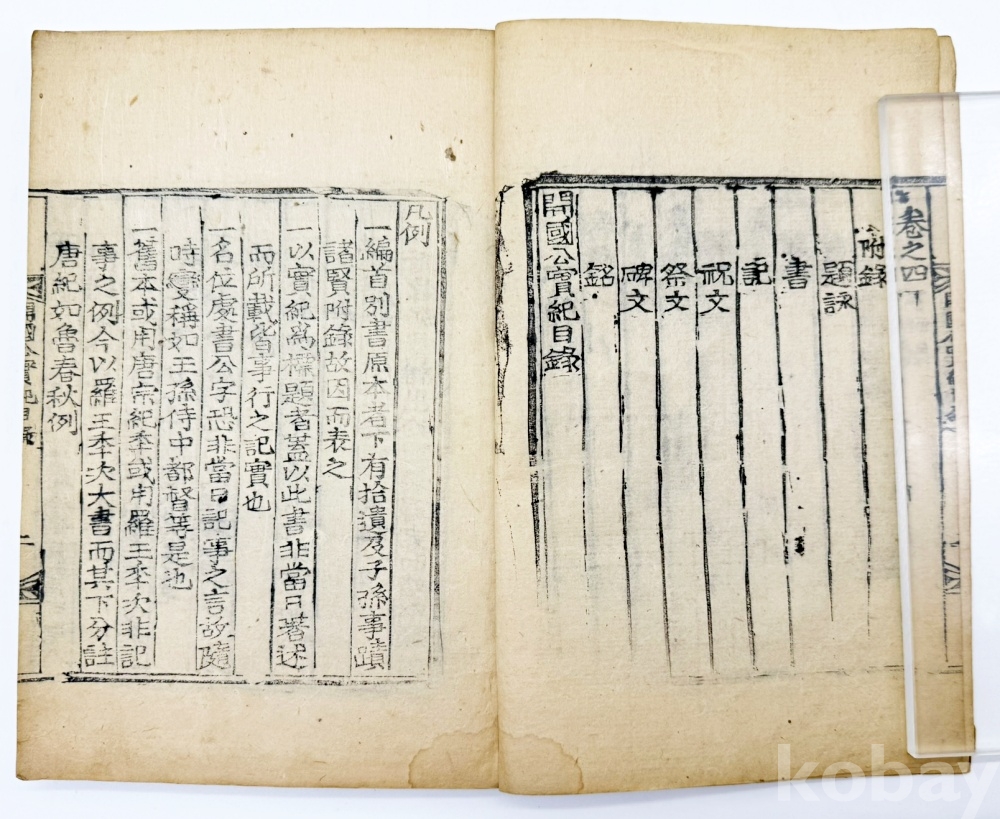 卷之四
附錄
題詠
書
記
祝文
祭文
碑文
銘
開國公實紀目錄
凡例
一編首別書原本者下有拾遺及子孫事蹟
諸賢附錄故因而表之
一以實紀爲標題者蓋以此書非當日著述
而所載皆事行之記實也
一名位處書公字恐非當日記事之言故隨
時變稱如王孫侍中都督等是也
一舊本或用唐宗紀年或用羅王年次非記
事之例今以羅王年次大書而其下分註
唐紀如魯春秋例
kobay